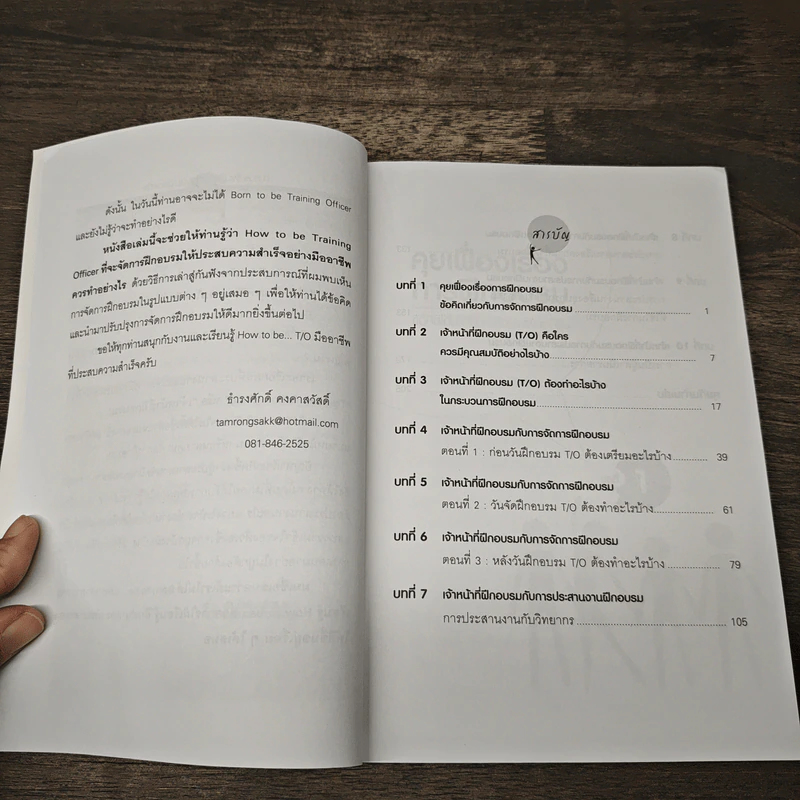 ดังนั้น ในวันนี้ท่านอาจจะไม่ได้ Born to be Training Officer
และยังไม่รู้ว่าจะทำอย่างไรดี
หนังสือเล่มนี้จะช่วยให้ท่านรู้ว่า How to be Training
Officer ที่จะจัดการฝึกอบรมให้ประสบความสำเร็จอย่างมืออาชีพ
ควรทำอย่างไร ด้วยวิธีการเล่าสู่กันฟังจากประสบการณ์ที่ผมพบเห็น
การจัดการฝึกอบรมในรูปแบบต่าง ๆ อยู่เสมอ ๆ เพื่อให้ท่านได้ข้อคิด
และนำมาปรับปรุงการจัดการฝึกอบรมให้ดีมากยิ่งขึ้นต่อไป
ขอให้ทุกท่านสนุกกับงานและเรียนรู้ How to be... T/O มืออาชีพ
ที่ประสบความสำเร็จครับ
ธำรงศักดิ์ คงคาสวัสดิ์
tamrongsakk@hotmail.com
081-846-2525
สารบัญ
บทที่ 1 คุยเฟื่องเรื่องการฝึกอบรม
ข้อคิดเกี่ยวกับการจัดการฝึกอบรม 1
บทที่ 2 เจ้าหน้าที่ฝึกอบรม (T/O) คือใคร
ควรมีคุณสมบัติอย่างไรบ้าง 7
บทที่ 3 เจ้าหน้าที่ฝึกอบรม (T/O) ต้องทำอะไรบ้าง
ในกระบวนการฝึกอบรม 17
บทที่ 4 เจ้าหน้าที่ฝึกอบรมกับการจัดการฝึกอบรม
ตอนที่ 1 : ก่อนวันฝึกอบรม T/O ต้องเตรียมอะไรบ้าง 39
บทที่ 5 เจ้าหน้าที่ฝึกอบรมกับการจัดการฝึกอบรม
ตอนที่ 2 : วันจัดฝึกอบรม T/O ต้องทำอะไรบ้าง 61
บทที่ 6 เจ้าหน้าที่ฝึกอบรมกับการจัดการฝึกอบรม
ตอนที่ 3 : หลังวันฝึกอบรม T/O ต้องทำอะไรบ้าง 79
บทที่ 7 เจ้าหน้าที่ฝึกอบรมกับการประสานงานฝึกอบรม
การประสานงานกับวิทยากร 105